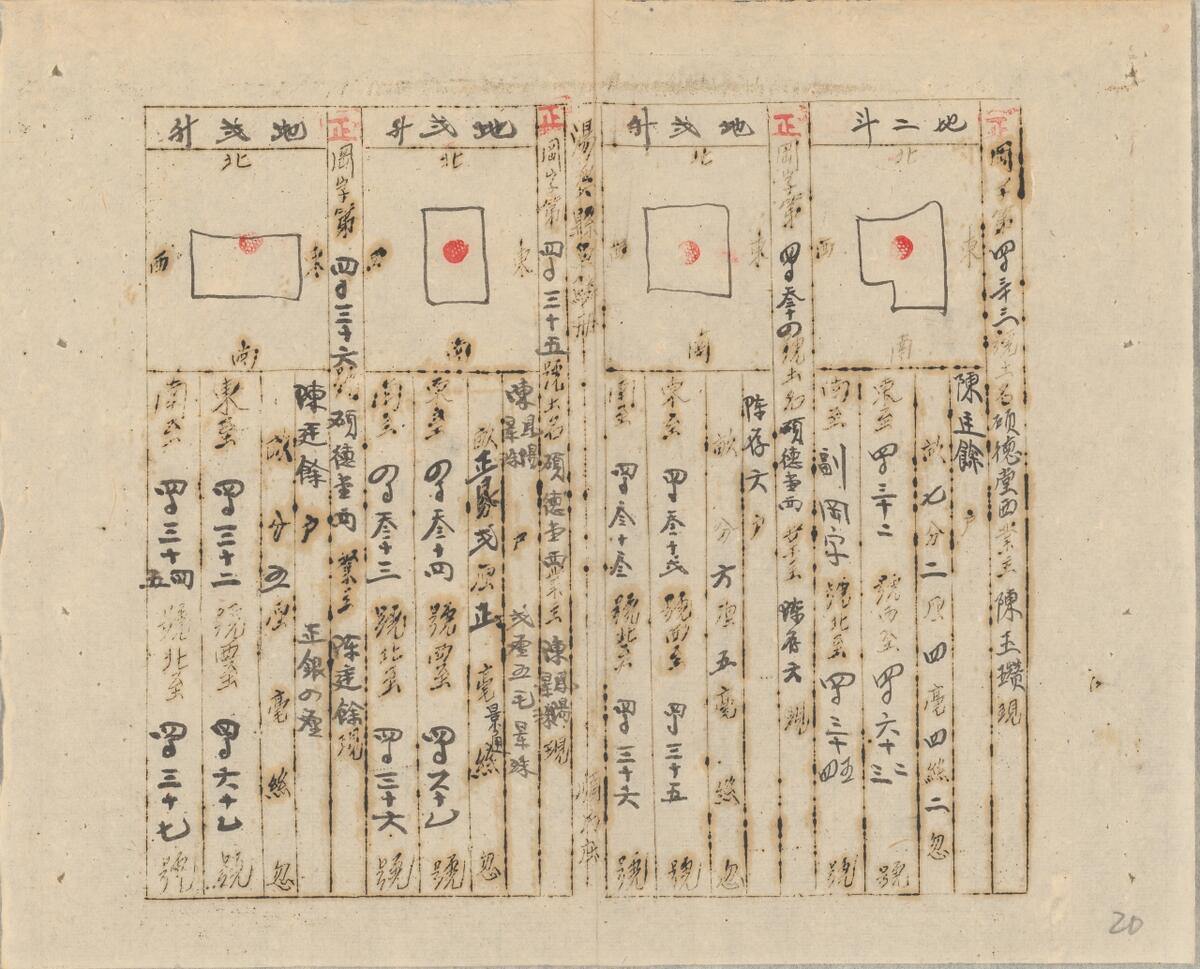 正
岡字第四千三十三號土名碩德堂西業主陳玉瓚現
地二斗
北
東
西
南
陳廷餘戶
畝七分二厘四毫四絲二忽
東至四千三十二號西至四千六十二號
南至副岡字號北至四千三十四號
正
岡字第四千叁十四號土名碩德堂西業主陈存六現
地弍升
北
東
西
南
陈存六戶
畝分六厘五毫絲忽
東至四千叁十弍號西至四千三十五號
南至四千叁十叁號北至四千三十六號
正
岡字第四千三十五號土名碩德堂西業主陳現
地弍升
北
東
西
南
戶
畝分弍厘正毫絲忽
東至四千叁十四號西至四千六十乚號
南至四千叁十三號北至四千三十六號
正
岡字第四千三十六號碩德堂西業主陈廷餘現
地弍升
北
東
西
南
陳廷餘戶
畝分五厘毫絲忽
東至四千三十二號西至四千六十乚號
南至四千三十四五號北至四千三十七號
20